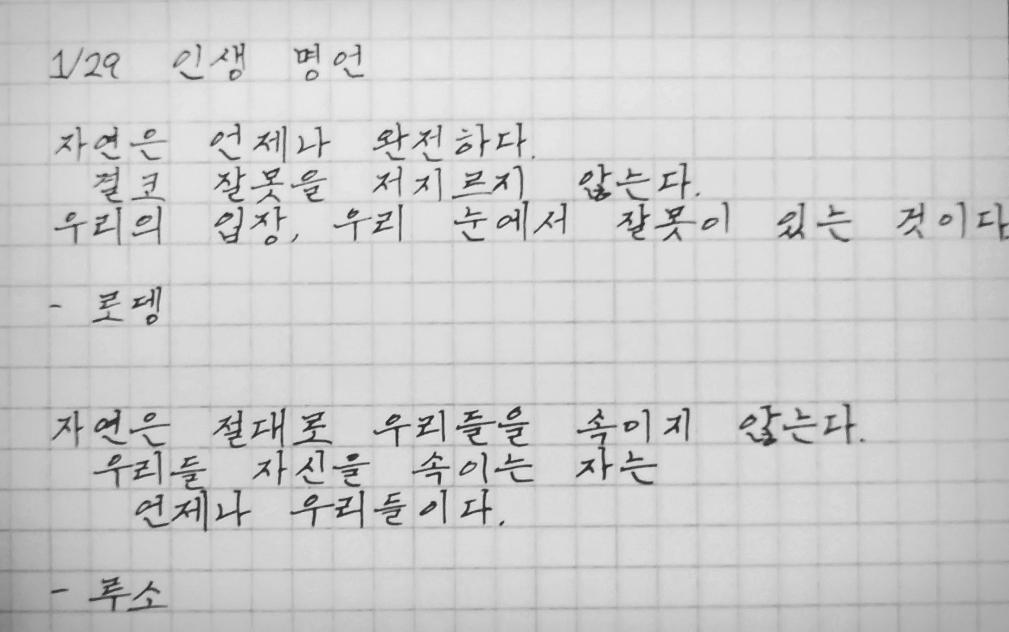 1/29 인생 명언
자연은 언제나 완전하다.
결코 잘못을 저지르지 않는다.
우리의 입장, 우리 눈에서 잘못이 있는 것이다
- 로뎅
자연은 절대로 우리들을 속이지 않는다.
우리들 자신을 속이는 자는
언제나 우리들이다.
- 루소